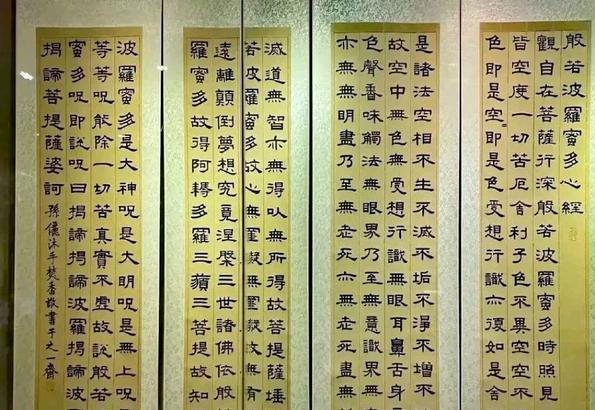 般若波羅蜜多心經
觀自在菩薩行深般若波羅蜜多時照見
皆空度一切苦厄舍利子色不異空空不
色即是空空即是色受想行識亦復如是舍
是諸法空相不生不滅不垢不淨不增不
故空中無色無受想行識無眼耳鼻舌身
色聲香味觸法無眼界乃至無意識界無
亦無無明盡乃至無老死亦無老死盡無
滅道無智亦無得以無所得故菩提薩埵
若波羅蜜多故心無罣礙無罣礙故無有
遠離顛倒夢想究竟涅槃三世諸佛依般
羅蜜多故得阿耨多羅三藐三菩提故知
波羅蜜多是大神呪是大明呪是無上呪是
等等呪能除一切苦真實不虛故說般若
蜜多呪即說呪曰揭諦揭諦波羅揭諦波
揭諦菩提薩婆訶 孫儀沐手焚香敬書于之一齋